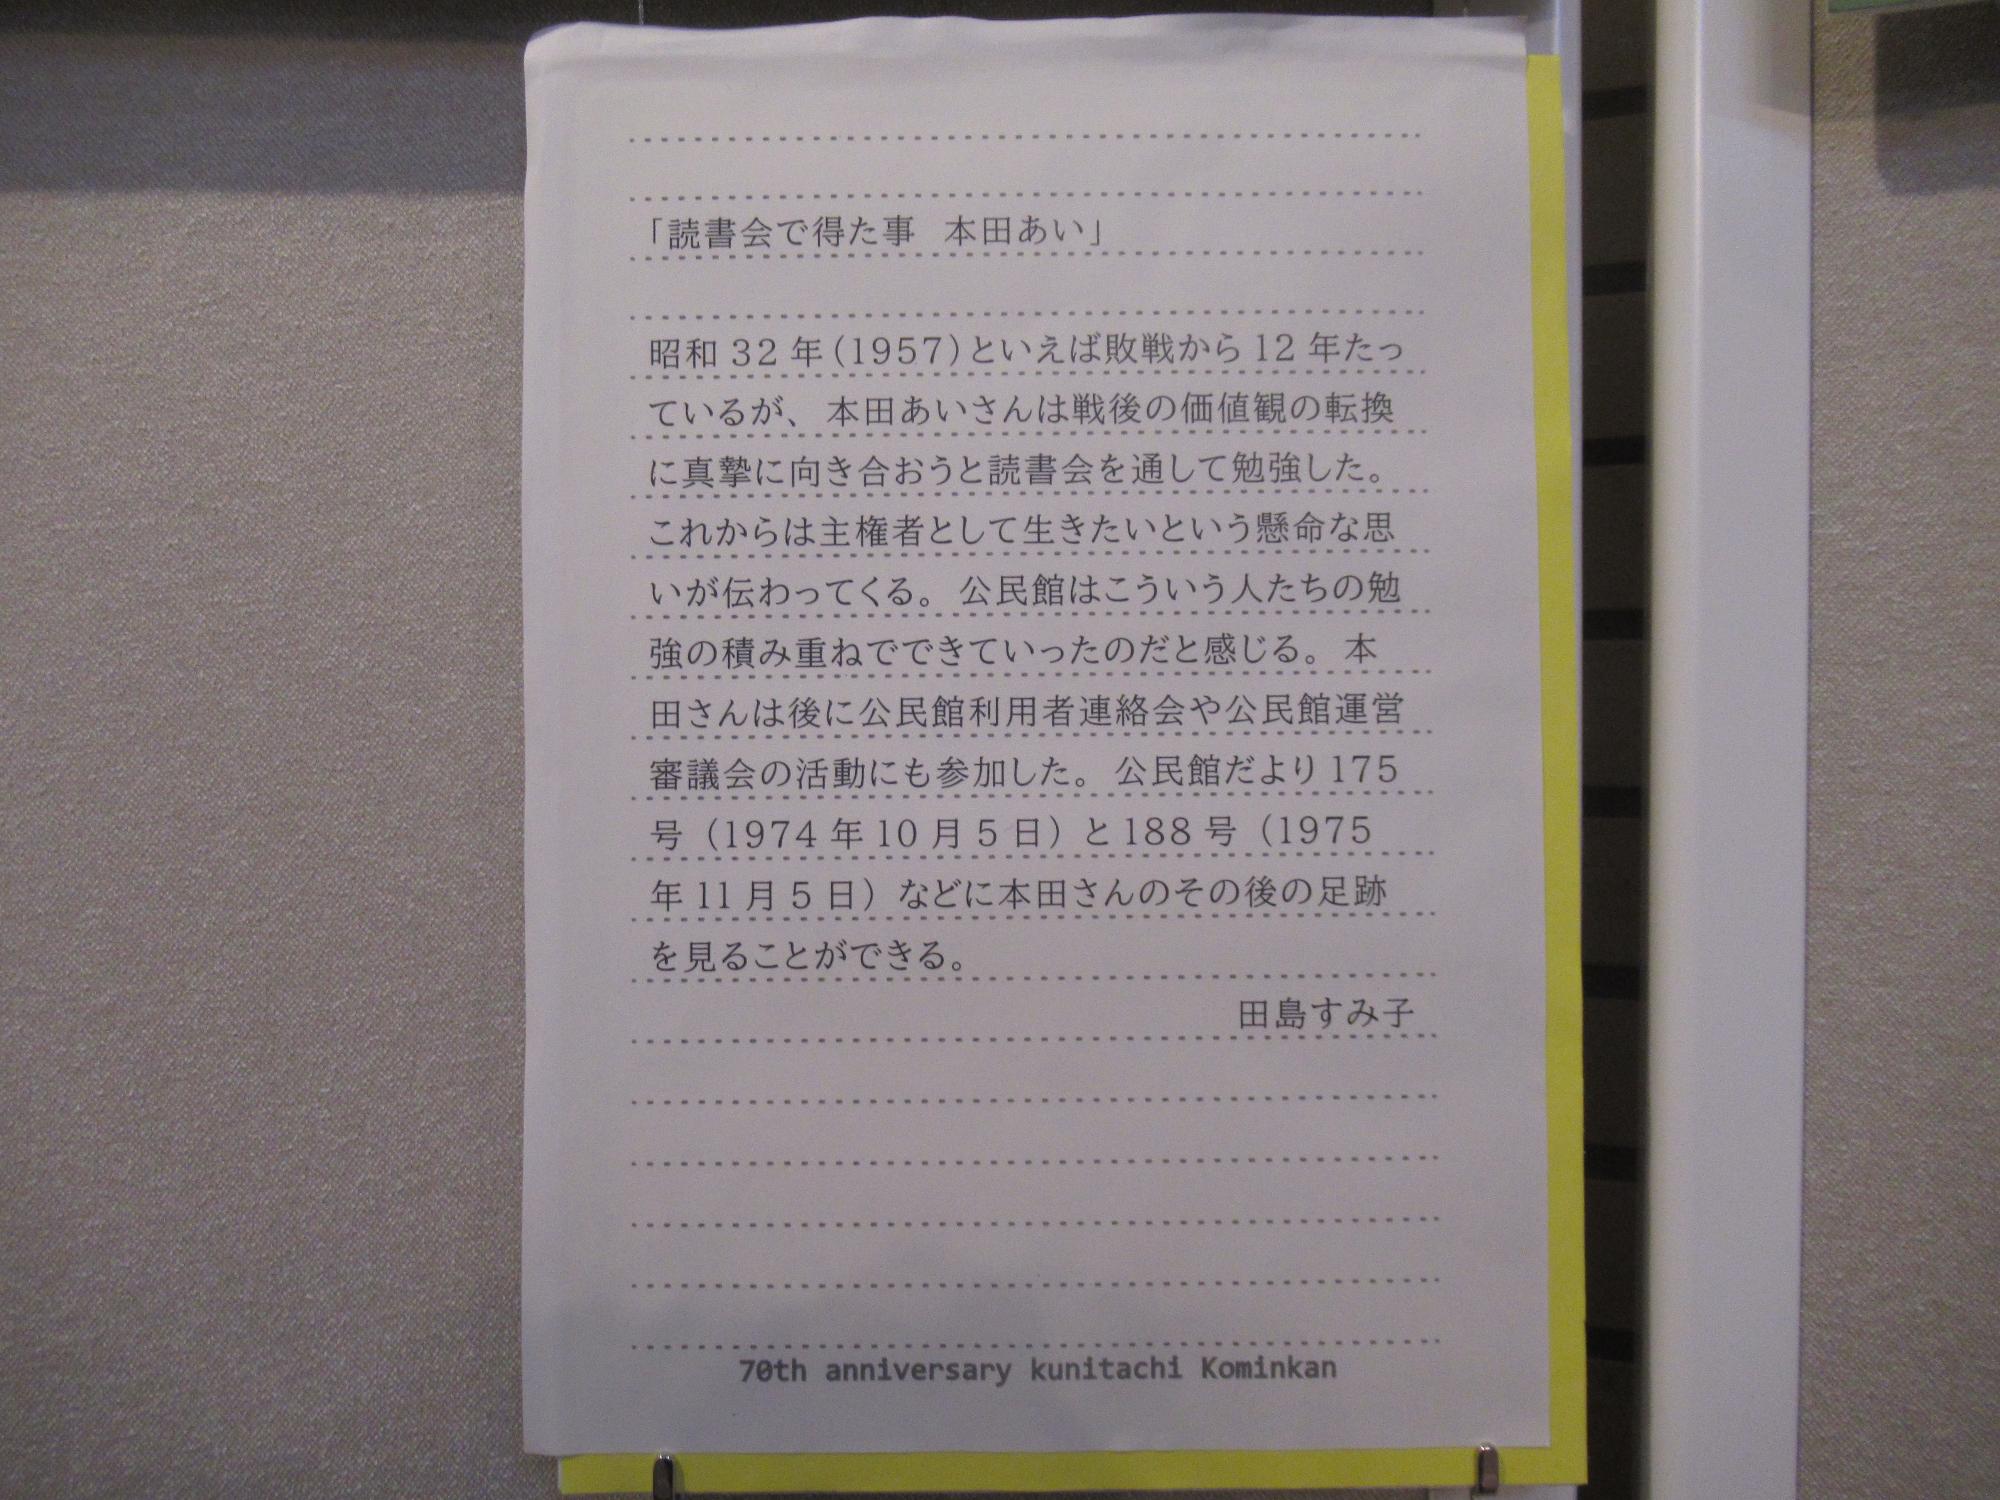 「読書会で得た事　本田あい」
昭和 32 年（1957）といえば敗戦から 12 年たっ
ているが、 本田あいさんは戦後の価値観の転換
に真摯に向き合おうと読書会を通して勉強した。
これからは主権者として生きたいという懸命な思
いが伝わってくる。 公民館はこういう人たちの勉
強の積み重ねでできていったのだと感じる。 本
田さんは後に公民館利用者連絡会や公民館運営
審議会の活動にも参加した。 公民館だより 175
号（1974 年 10 月 5 日）と 188 号（1975
年 11 月 5 日）などに本田さんのその後の足跡
を見ることができる。
田島すみ子
70th anniversary kunitachi Kominkan